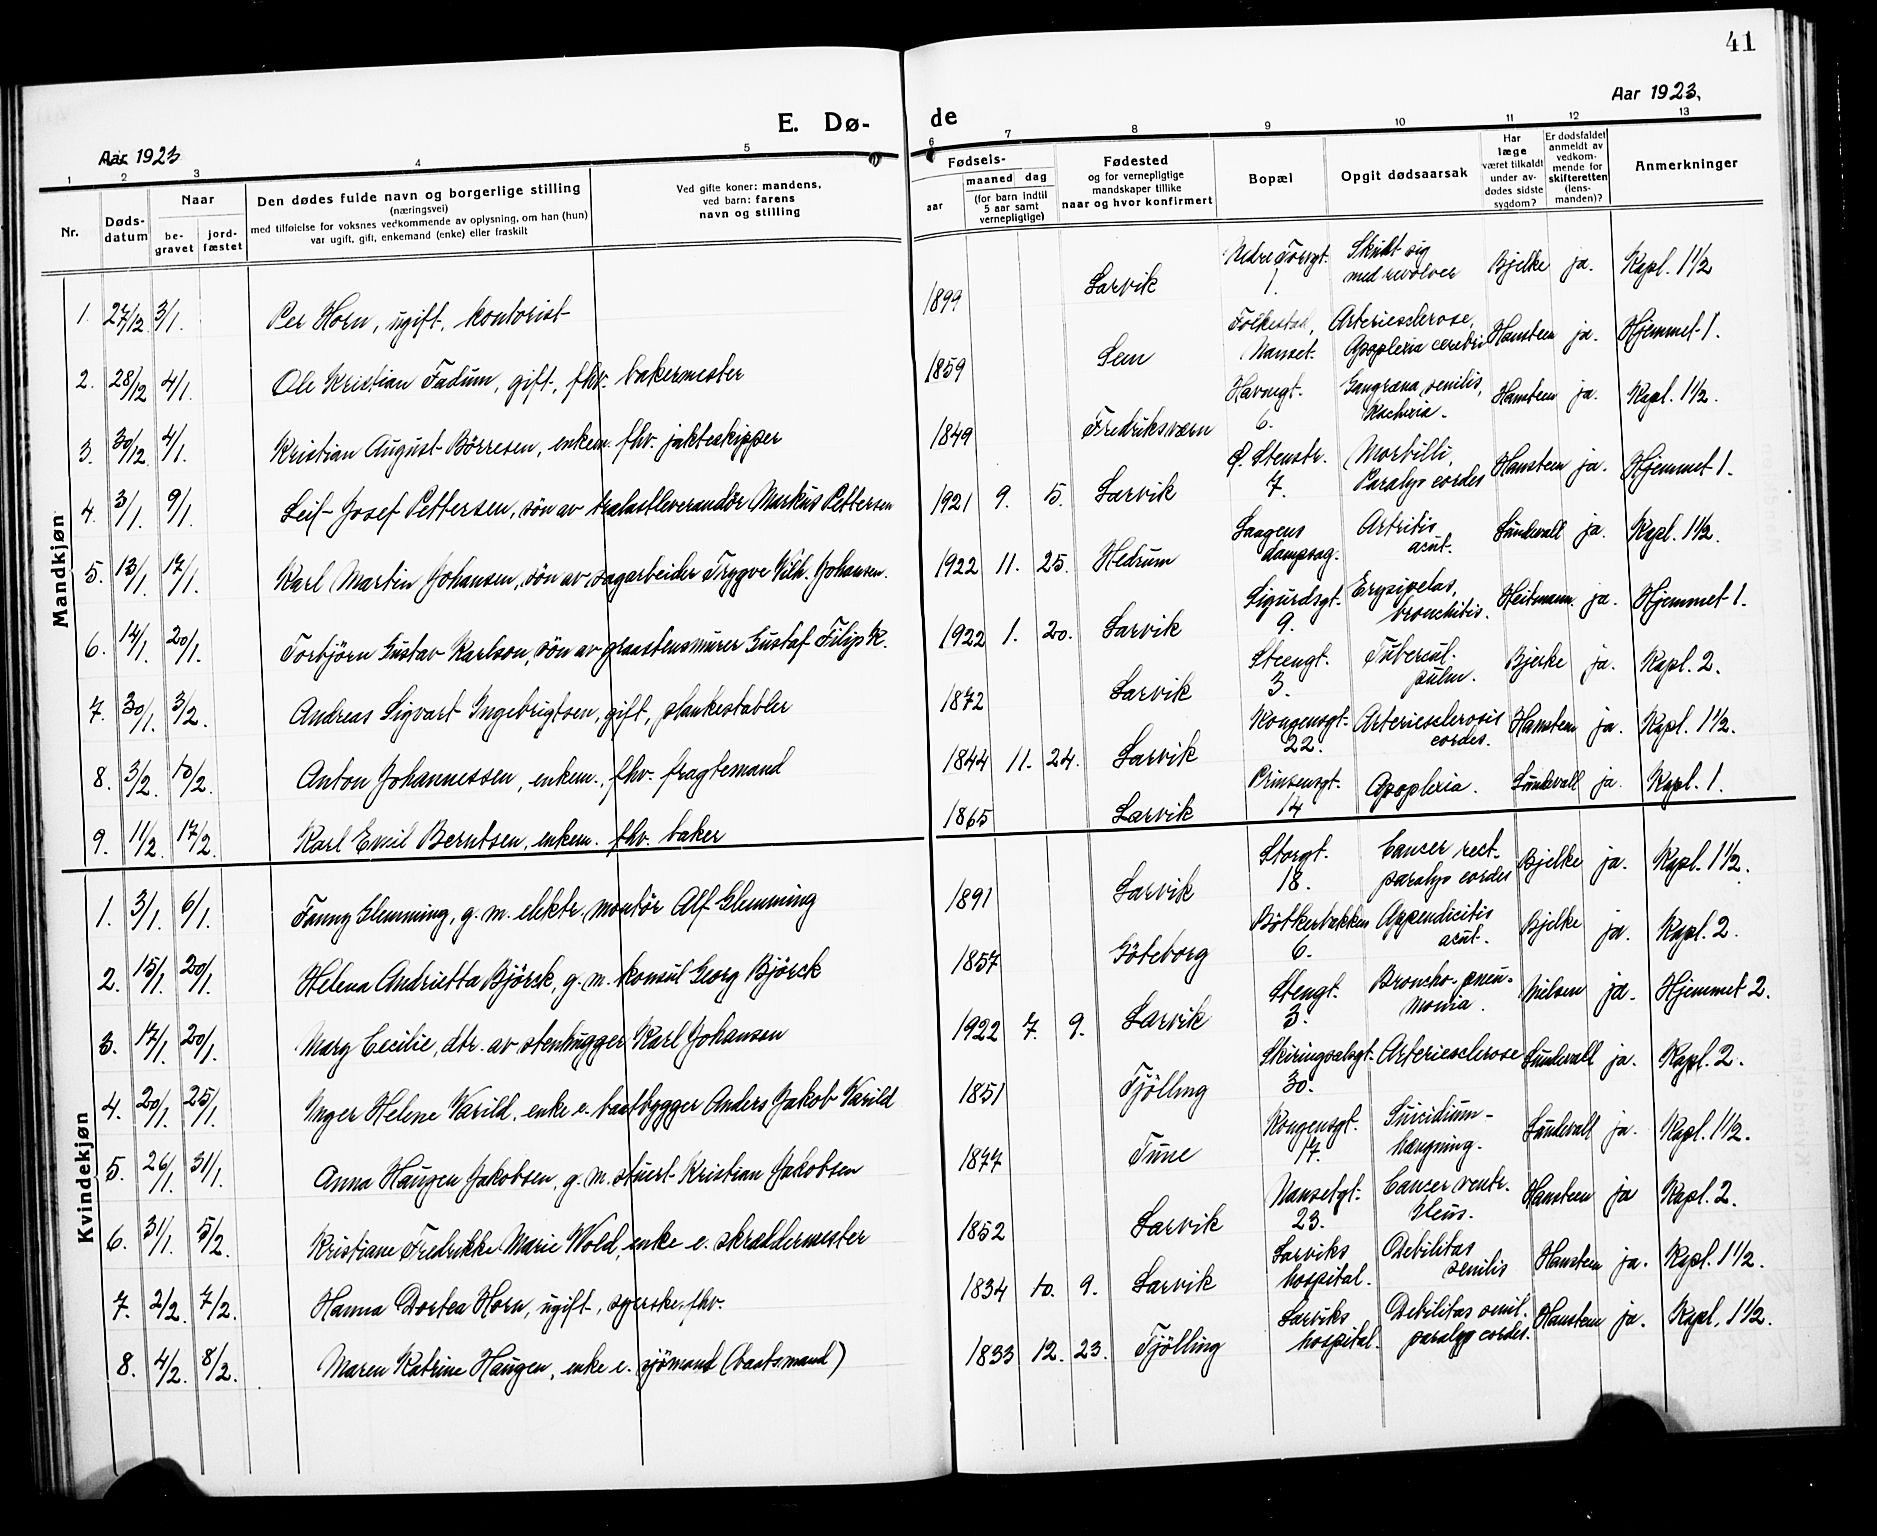 41
Aar 1923
E. Dø-
de
Aar 1923,
1 2 3 4 5
6 7 8 9 10 11 12 13
Nr.
Døds-
datum
Naar
be-
gravet
jord-
fæstet
Den dødes fulde navn og borgerlige stilling
(næringsvei)
med tilføielse for voksnes vedkommende av oplysning, om han (hun)
var ugift, gift, enkemand (enke) eller fraskilt
Ved gifte koner: mandens,
ved barn: farens
navn og stilling
Fødsels-
aar
maaned dag
(for barn indtil
5 aar samt
vernepligtige)
Fødested
og for vernepligtige
mandskaper tillike
naar og hvor konfirmert
Bopæl
Opgit dødsaarsak
Har
læge
været tilkaldt
under av-
dødes sidste
sygdom?
Er dødsfaldet
anmeldt av
vedkom-
mende for
skifteretten
(lens-
manden)?
Anmerkninger
Mandkjøn
1. 27/12 3/1. Per Horn, ugift, kontorist 1899 Larvik Nedre Torvgt. 1. Skutt sig med revolver Bjelke ja. Kapl. 1 1/2
2. 28/12 4/1. Ole Kristian Fadum, gift, fhv. bakermester 1859 Sem Folkestad, Nanset. Arteriesclerose, Apoplexia cerebri Hansteen ja. Hjemmet 1.
3. 30/12 4/1. Kristian August Börresen, enkem. fhv. jakteskipper 1849 Fredriksværn Havnegt. 6. Gangræna senilis, Kachexia. Hansteen ja. Kapl. 1 1/2.
4. 3/1. 9/1. Leif Josef Pettersen, sön av trælastleverandör Markus Pettersen 1921 9. 5. Larvik Ø. Stenstr. 7. Morbilli, Paralys cordes Hansteen ja. Hjemmet 1.
5. 13/1. 17/1. Karl Martin Johansen, sön av sagarbeider Trygve Vilh. Johansen. 1922 11. 25. Hedrum Laagens dampsag. Artritis acut. Sundevall ja. Kapl. 1 1/2.
6. 14/1. 20/1. Torbjörn Gustav Karlson, sön av graastensmurer Gustaf Filip K. 1922 1. 20. Larvik Sigurdsgt. 9. Erysipelas, bronchitis. Heitmann. ja. Hjemmet 1.
7. 30/1. 3/2. Andreas Sigvart Ingebrigtsen, gift, plankestabler 1872 Larvik Steengt. 3. Tubercul. pulm. Bjerke ja. Kapl. 2.
8. 3/2. 10/2. Anton Johannessen, enkem., fhv. fragtemand 1844 11. 24. Larvik Kongensgt. 22. Arteriesclerosis cordes. Hansteen ja. Kapl. 1 1/2.
9. 11/2. 17/2. Karl Emil Berntsen, enkem. fhv. baker 1865 Larvik Prinsensgt. 14 Apoplexia. Sundevall ja. Kapl. 1.
Kvindekjøn
1. 3/1. 6/1. Fanny Glemming, g. m. elektr. montör Alf Glemming 1891 Larvik Storgt. 18. Cancer rect. paralys cordes Bjelke ja. Kapl. 1 1/2.
2. 15/1. 20/1. Helena Andrietta Björck, g. m. konsul Georg Björck 1857 Göteborg Bötkerbakken 6. Appendicitis acut. Bjelke ja. Kapl. 2.
3. 17/1. 20/1. Mary Cecilie, dtr. av stenhugger Karl Johansen 1922 7. 9. Larvik Stengt. 3. Broncho-pneumonia. Nielsen ja. Hjemmet 2.
4. 20/1. 25/1. Inger Helene Varild, enke e. baatbygger Anders Jakob Varild 1851 Tjölling Skiringsalsgt. 30. Arteriesclerose Sundevall ja. Kapl. 2.
5. 26/1. 31/1. Anna Haugen Jakobsen, g. m. stuert Kristian Jakobsen 1877 Tune Kongensgt. 17. Suicidium-hængning. Sundevall ja. Kapl. 1 1/2.
6. 31/1. 5/2. Kristiane Fredrikke Marie Wold, enke e. skræddermester 1852 Larvik Nansetgt. 23. Cancer ventr. Ileus. Hansteen ja Kapl. 2.
7. 2/2. 7/2. Hanna Dortea Horn, ugift, syerske, fhv. 1834 10. 9. Larvik Larviks hospital. Debilitas senilis Hansteen ja. Kapl. 1 1/2.
8. 4/2. 8/2. Maren Katrine Haugen, enke e. sjömand (baatsmand) 1833 12. 23. Tjölling Larviks hospital. Debilitas senil. paralys cordes. Hansteen ja. Kapl. 1 1/2.